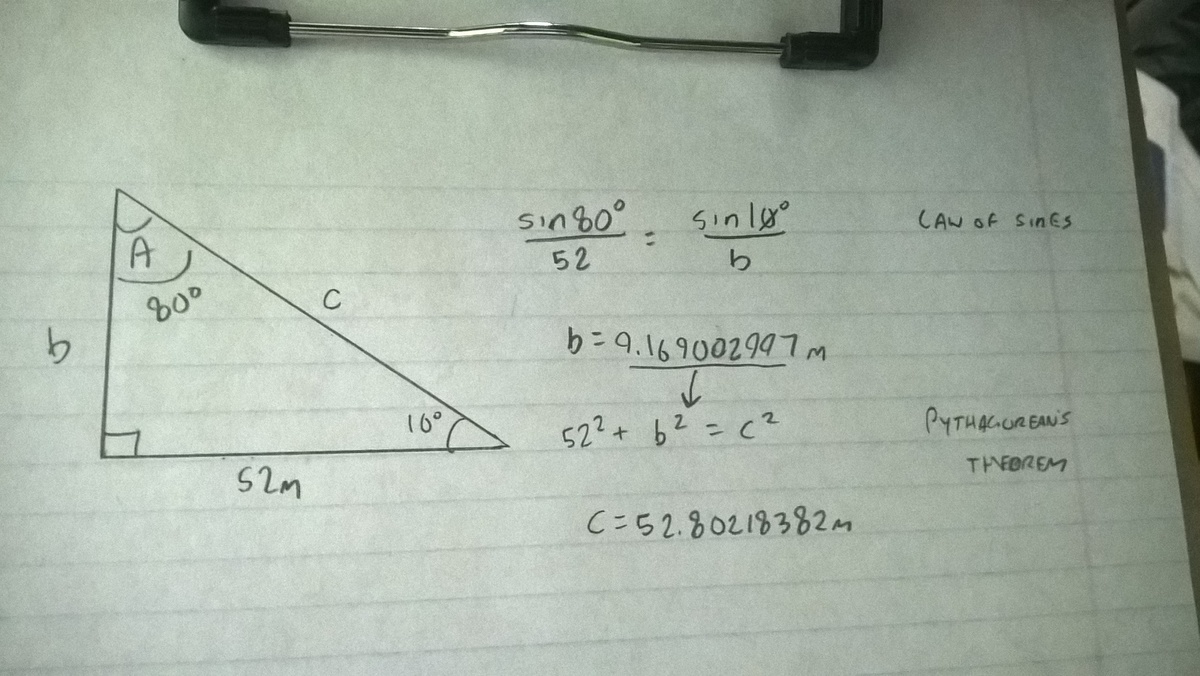 A
80°
b
C
10°
52m
sin80°/52 = sin10°/b
LAW OF SINES
b=9.169002997m
52²+ b² = c²
PYTHAGOREAN'S
THEOREM
C=52.80218382m